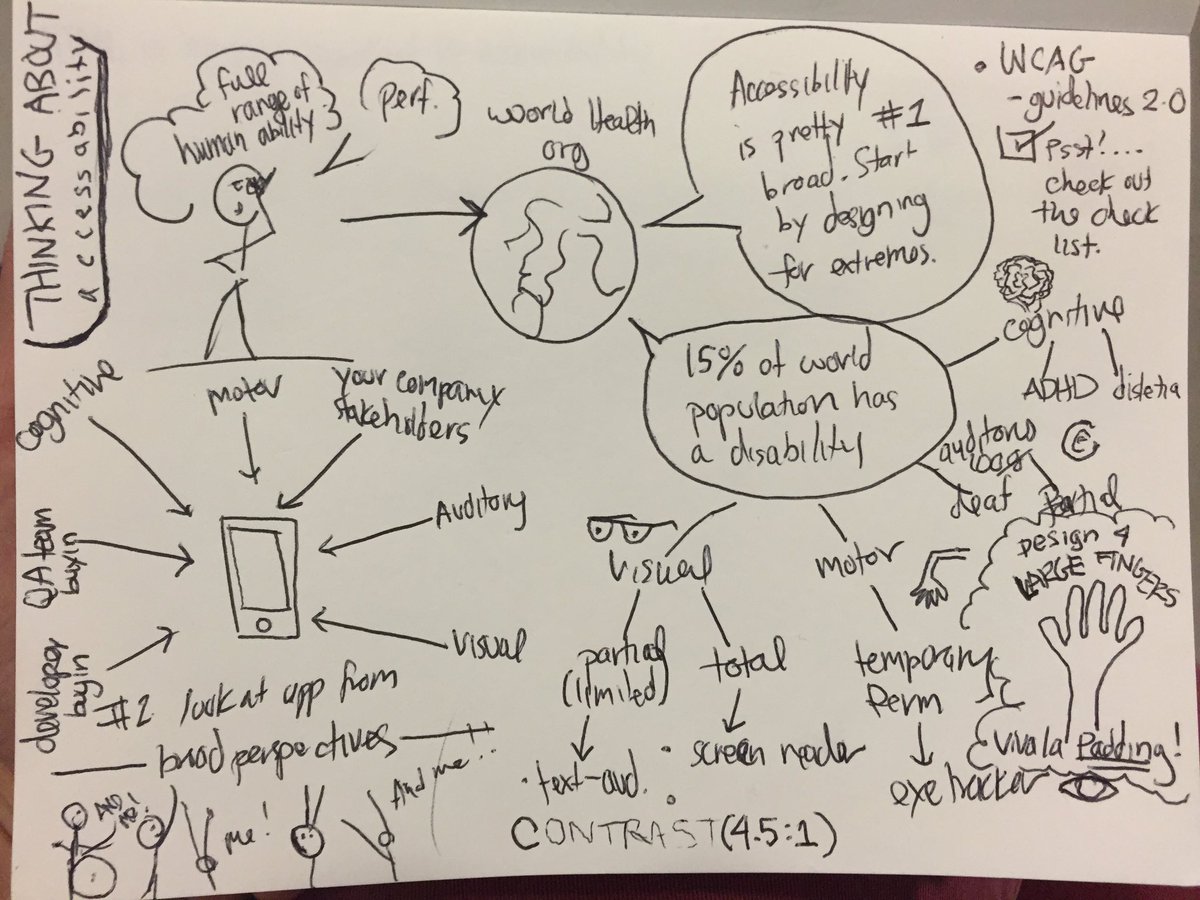 THINKING ABOUT
accessability
full
range of
human ability
perf.
world Health
org
Accessibility
is pretty #1
broad. Start
by designing
for extremes.
• WCAG
- guidelines 2.0
Psst!...
check out
the check
list.
15% of world
population has
a disability
cognitive
ADHD
dislexia
auditory
loss
deaf
Partial
Design 4
LARGE FINGERS
Viva la Padding!
visual
partial
(limited)
total
• text-aud.
• screen reader
• CONTRAST (4.5:1)
motor
temporary
Perm
eye tracker
cognitive
motor
your company
stakeholders
Auditory
visual
QA team
buyin
developer
buyin
#2 look at app from
broad perspectives
AND
ME!
me!
And me!!